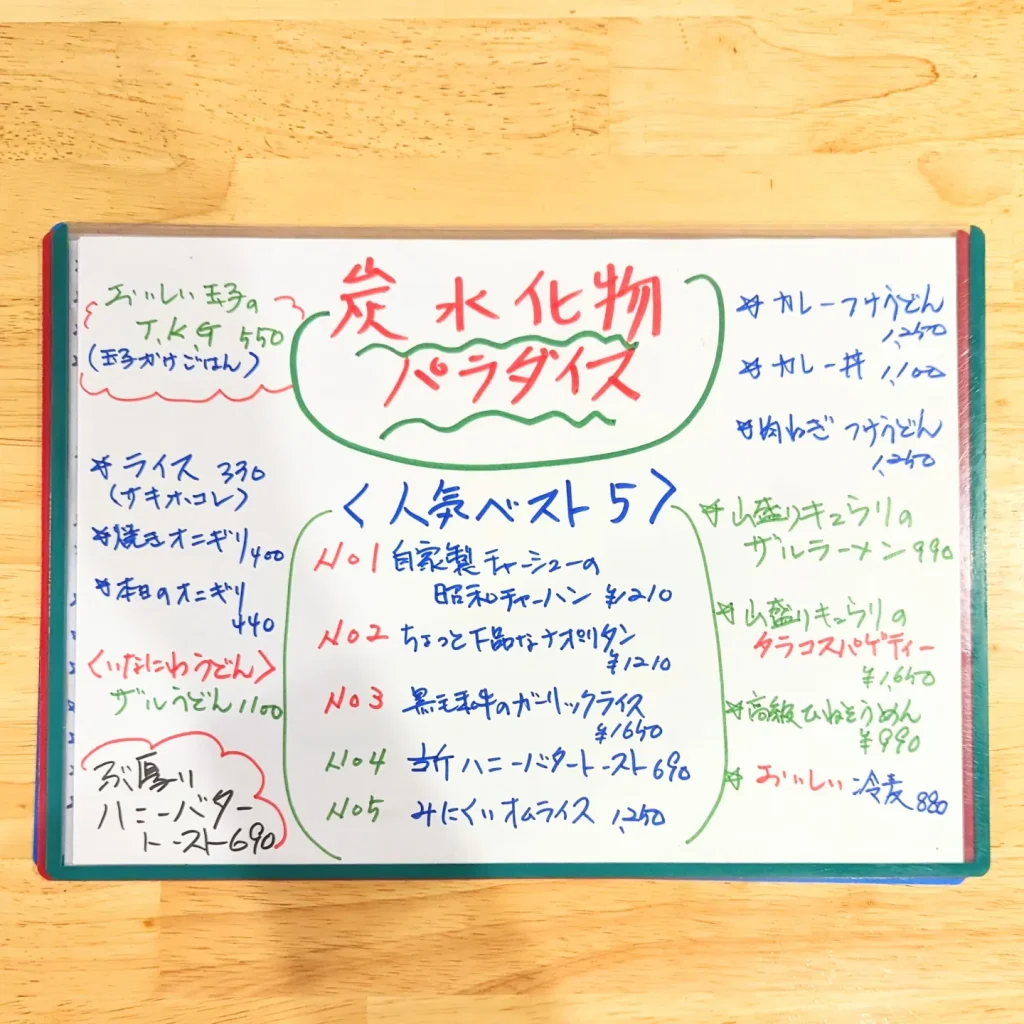 炭水化物
パラダイス
おいしい玉子の
T.K.G 550
(玉子かけごはん)
☆ライス 330
(サキホコレ)
☆焼きオニギリ400
☆本日のオニギリ
440
〈いなにわうどん〉
ザルうどん1100
ぶ厚い
ハニーバター
トースト690
〈人気ベスト5〉
No1 自家製チャーシューの
昭和チャーハン ¥1210
No2 ちょっと下品なナポリタン
¥1210
No3 黒毛和牛のガーリックライス
¥1650
No4 ハニーバタートースト690
No5 みにくいオムライス 1,250
☆カレーつけうどん
1,250
☆カレー丼 1,100
☆肉ねぎ つけうどん
1,250
☆山盛りキュウリの
ザルラーメン 990
☆山盛りキュウリの
タラコスパゲティー
¥1,650
☆高級ひねそうめん
¥990
☆おいしい 冷麦 880